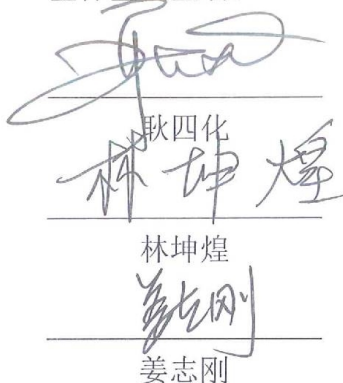 耿四化
林坤煌
林坤煌
姜志刚
姜志刚